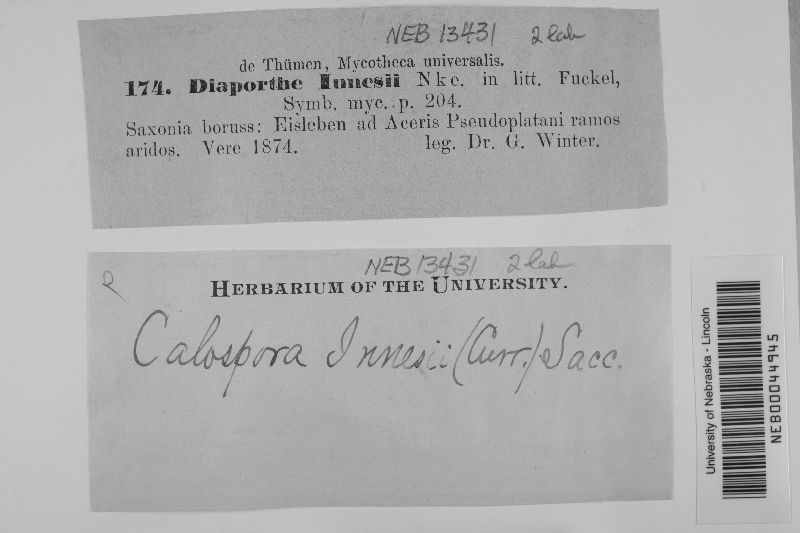 NEB 13431 2 lab
de Thümen, Mycotheca universalis.
174. Diaporthe Innesii Nke. in litt. Fuckel,
Symb. myc. p. 204.
Saxonia boruss: Eisleben ad Aceris Pseudoplatani ramos
aridos. Vere 1874. leg. Dr. G. Winter.
NEB 13431 2 lab
HERBARIUM OF THE UNIVERSITY.
Calospora Innesii (Curr.) Sacc.
University of Nebraska - Lincoln
NEB00044945